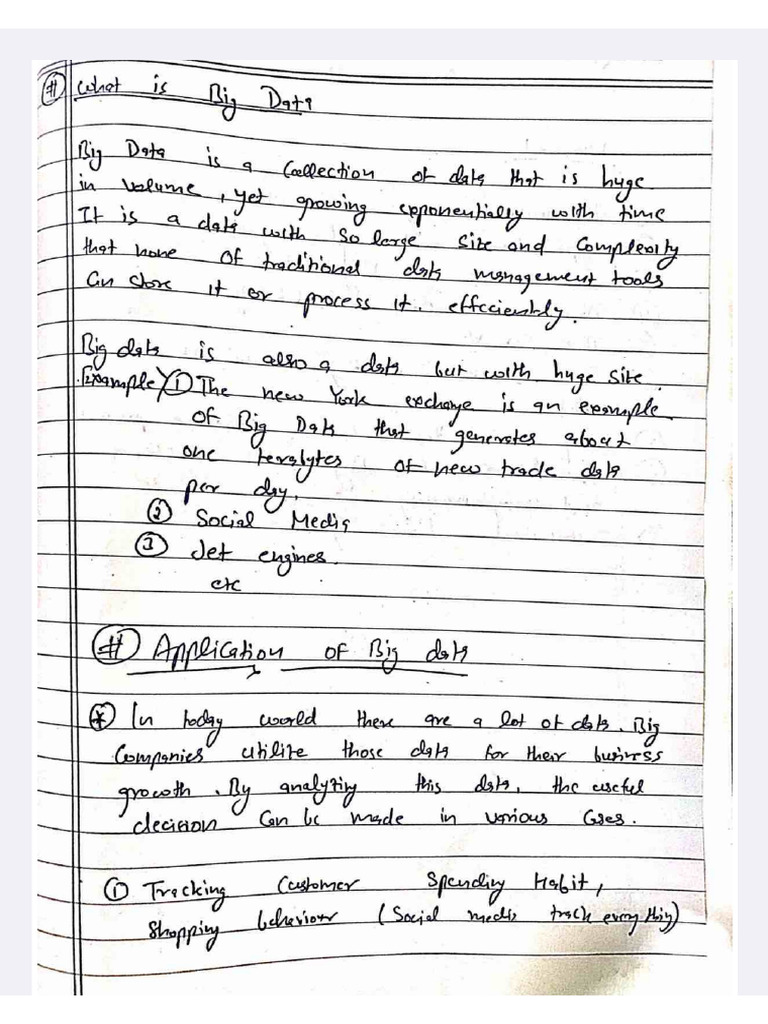 # What is Big Data
Big Data is a Collection of data that is huge
in volume, yet growing exponentially with time
It is a data with so large size and Complexity
that none of traditional data management tools
Can store it or process it. effeciently.
Big data is also a data but with huge size.
Example ① The new York exchange is an example
of Big Data that generates about
one terabytes of new trade data
per day.
② Social Media
③ Jet engines.
etc
# Application of Big data
* In today world there are a lot of data. Big
Companies utilize those data for their business
growth. By analyzing this data, the useful
decision Can be made in various Cases.
① Tracking Customer Spending Habit,
Shopping behaviour (Social media track every thing)